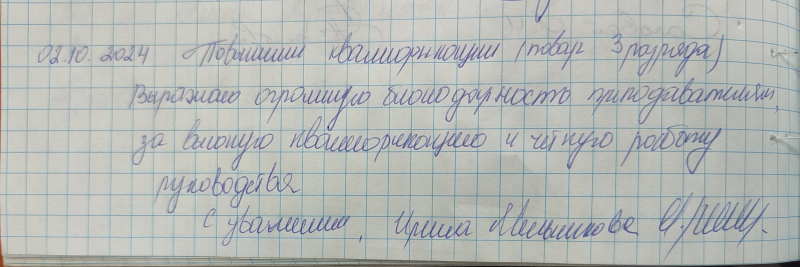 02.10.2024 Повышении квалификации (повар 3 разряда)
Выражаю огромную благодарность преподавателям,
за высокую квалификацию и чёткую работу
руководства
С уважением, Ирина Мельникова